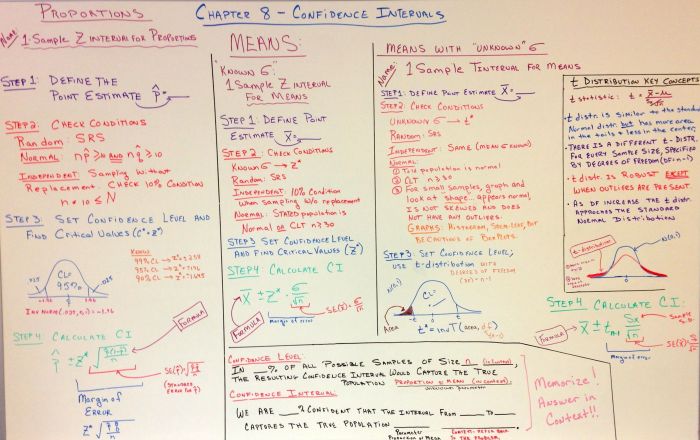 PROPORTIONS
CHAPTER 8 - CONFIDENCE INTERVALS
Name:
1-Sample Z INTERVAL FOR PROPORTIONS
STEP 1: DEFINE THE
POINT ESTIMATE p̂ = ___
STEP 2: CHECK CONDITIONS
Random: SRS
NORMAL: np̂ ≥ 10 AND nq̂ ≥ 10
INDEPENDENT: Sampling Without
Replacement. CHECK 10% CONDITION
n * 10 ≤ N
STEP 3: SET CONFIDENCE LEVEL AND
FIND CRITICAL VALUES (C* Z*)
CLT
95%
.025
.025
-1.96
0
1.96
INV NORM(.025,0,1) = -1.96
STEP 4: CALCULATE CI
FORMULA
p̂ ± Z*
(STANDARD
ERROR FOR p̂)
Margin of
ERROR
MEANS:
"KNOWN σ":
1 SAMPLE Z INTERVAL
FOR MEANS
STEP 1: DEFINE POINT
ESTIMATE X̄ = ___
STEP 2: CHECK CONDITIONS
KNOWN σ → Z*
Random: SRS
INDEPENDENT: 10% Condition
When Sampling W/o replacement
NORMAL: STATED population is
Normal OR CLT n ≥ 30
STEP 3 SET CONFIDENCE LEVEL
AND FIND CRITICAL VALUES (Z*)
STEP 4 CALCULATE CI
X̄ ± Z* · σ/√n
SE(x̄) = σ/√n
FORMULA
Margin of error
MEANS WITH "UNKNOWN" σ
Name:
1 SAMPLE T INTERVAL FOR MEANS
STEP 1: DEFINE POINT ESTIMATE X̄ = ___
STEP 2: CHECK CONDITIONS
UNKNOWN σ → t*
Random: SRS
INDEPENDENT: SAME (MEAN σ KNOWN)
NORMAL:
① Told population is normal
② CLT n ≥ 30
③ For small samples, graph and
look at shape... appears normal,
IS NOT SKEWED AND DOES
NOT HAVE ANY OUTLIERS.
GRAPHS: HISTOGRAM, STEM-LEAF, BUT
BE CAUTIOUS OF BOXPLOTS.
STEP 3: SET CONFIDENCE LEVEL;
USE t-distribution WITH
DEGREES OF FREEDOM
(DF) = n-1
N(0,1)
CL
-t
0
t
Area
t* = invT(area, df)
t DISTRIBUTION KEY CONCEPTS
t statistic: t =
• t distr. is Similar to the standard
Normal distr. but has more area
in the tails & less in the center
• THERE IS A DIFFERENT t-DISTR.
FOR EVERY SAMPLE SIZE, SPECIFIED
BY DEGREES OF FREEDOM (DF = n-1)
• t distr. is ROBUST EXCEPT
WHEN OUTLIERS ARE PRESENT
• AS DF INCREASE THE t DISTR.
APPROACHES THE STANDARD
NORMAL DISTRIBUTION
t-distribution
N(0,1)
STEP 4 CALCULATE CI:
FORMULA
Sample
S.D.
Margin of error
CONFIDENCE LEVEL:
IN ___% OF ALL POSSIBLE SAMPLES OF SIZE n (in context),
THE RESULTING CONFIDENCE INTERVAL WOULD CAPTURE THE TRUE
POPULATION PROPORTION or MEAN (IN CONTEXT).
CONFIDENCE INTERVAL:
WE ARE ___% CONFIDENT THAT THE INTERVAL FROM ___ TO ___
CAPTURES THE TRUE POPULATION ___
Parameter
Proportion or Mean
TO THE PROBLEM.
Memorize!
Answer in
Context!!